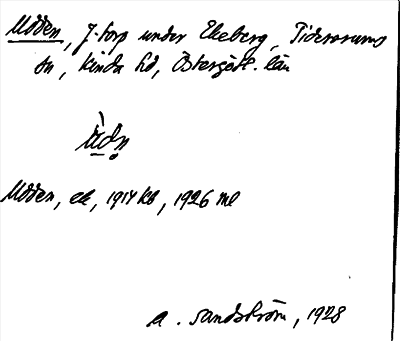 Udden, J.torp under Ekeberg, Tidersrums
sn, Kinda hd, Östergötl. län
Udden, ek, 1914 kb, 1926 ml
A. Sandström, 1928